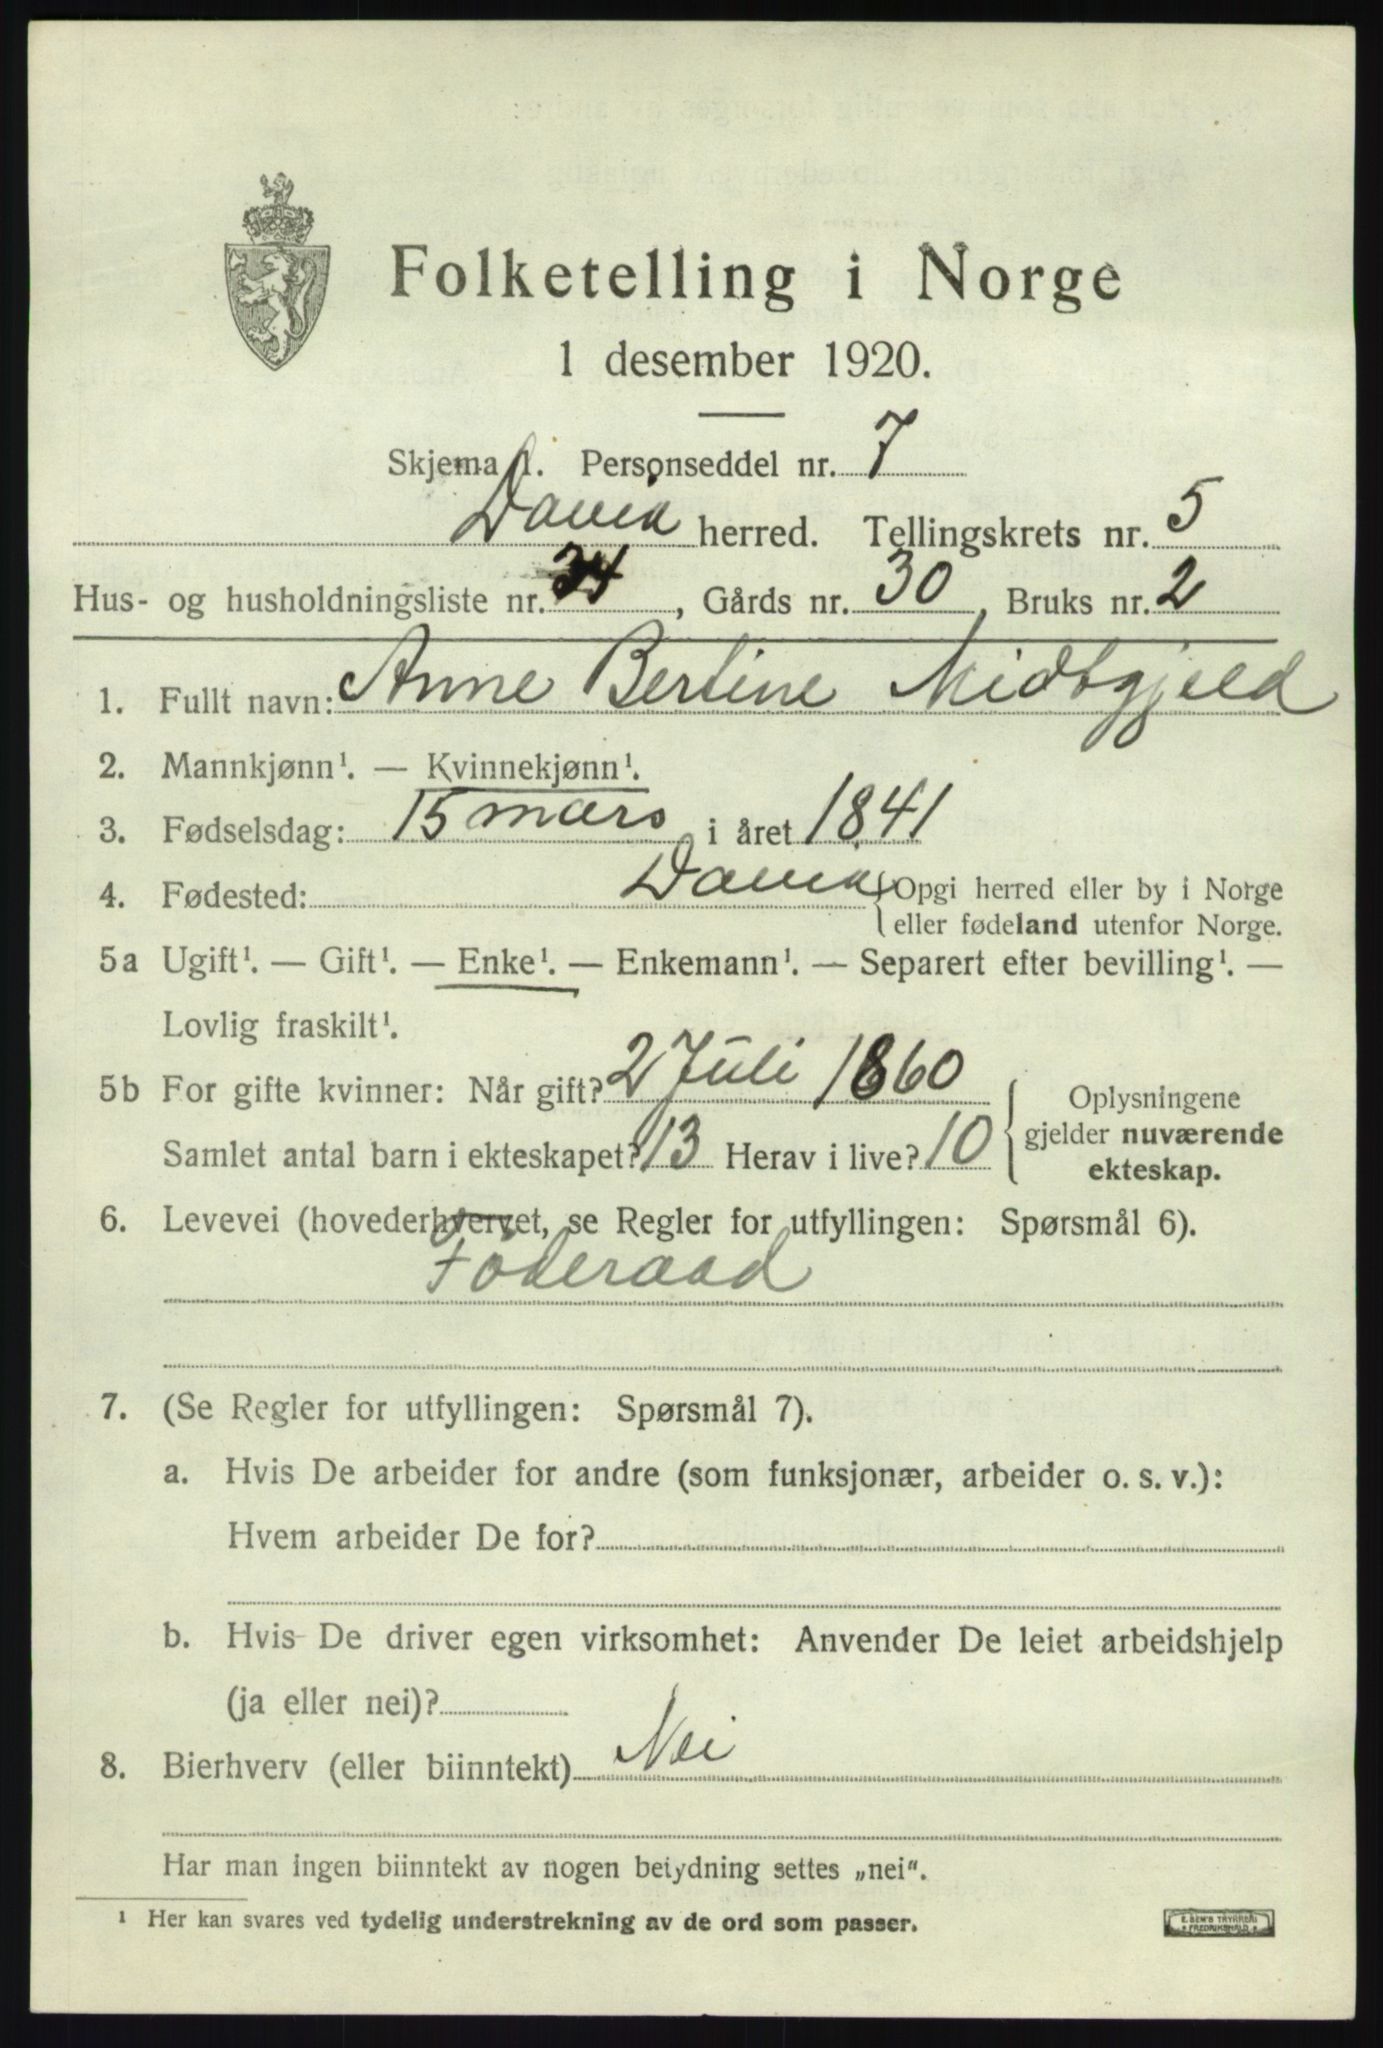 Folketelling i Norge
1 desember 1920.
Skjema 1. Personseddel nr. 7
Davik herred. Tellingskrets nr. 5
Hus- og husholdningsliste nr. 34, Gårds nr. 30, Bruks nr. 2
1. Fullt navn: Anne Bertine Midtgjeld
2. Mannkjønn¹. — Kvinnekjønn¹.
3. Fødselsdag: 15 mars i året 1841
4. Fødested: Davik { Opgi herred eller by i Norge
eller fødeland utenfor Norge.
5a Ugift¹. — Gift¹. — Enke¹. — Enkemann¹. — Separert efter bevilling¹. —
Lovlig fraskilt¹.
5b For gifte kvinner: Når gift? 2 Juli 1860
Samlet antal barn i ekteskapet? 13 Herav i live? 10
Oplysningene
gjelder nuværende
ekteskap.
6. Levevei (hovederhvervet, se Regler for utfyllingen: Spørsmål 6).
Föderaad
7. (Se Regler for utfyllingen: Spørsmål 7).
a. Hvis De arbeider for andre (som funksjonær, arbeider o. s. v.):
Hvem arbeider De for?
b. Hvis De driver egen virksomhet: Anvender De leiet arbeidshjelp
(ja eller nei)?
8. Bierhverv (eller biinntekt) Nei
Har man ingen biinntekt av nogen betydning settes „nei".
¹ Her kan svares ved tydelig understrekning av de ord som passer.
E. SEM'S TRYKKERI
FREDRIKSHALD